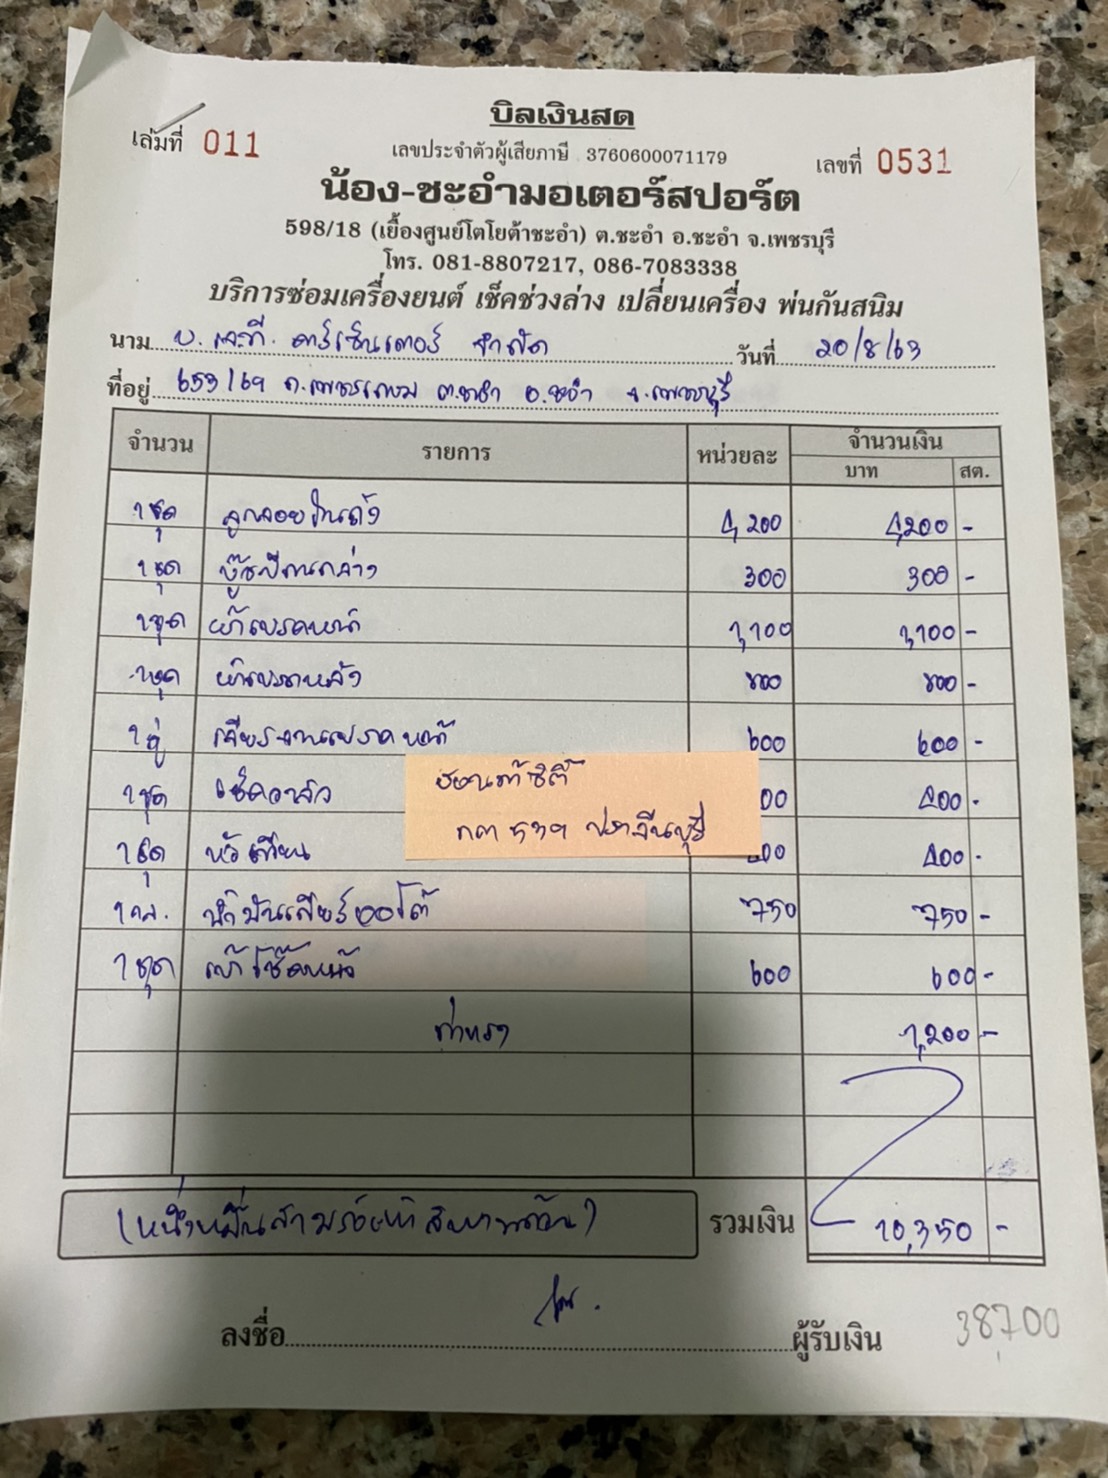 บิลเงินสด
เล่มที่ 011
เลขประจำตัวผู้เสียภาษี 3760600071179
เลขที่ 0531
น้อง-ชะอำมอเตอร์สปอร์ต
598/18 (เยื้องศูนย์โตโยต้าชะอำ) ต.ชะอำ อ.ชะอำ จ.เพชรบุรี
โทร. 081-8807217, 086-7083338
บริการซ่อมเครื่องยนต์ เช็คช่วงล่าง เปลี่ยนเครื่อง พ่นกันสนิม
นาม บ. เจ.ที. คาร์เซ็นเตอร์ จำกัด วันที่ 20/8/63
ที่อยู่ 653/69 ถ.เพชรเกษม ต.ชะอำ อ.ชะอำ จ.เพชรบุรี
จำนวน รายการ หน่วยละ จำนวนเงิน
บาท สต.
1ชุด ลูกลอยในถัง 4,200 4,200 -
1ชุด บู๊ชปีกนกล่าง 300 300 -
1ชุด ผ้าเบรคหน้า 1,100 1,100 -
1ชุด ผ้าเบรคหลัง 800 800 -
1คู่ เจียรจานเบรคหน้า 600 600 -
1ชุด 00 400 -
1ชุด หัวเทียน 00 400 -
ฮอนด้าซิตี้
กต 539 ปราจีนบุรี
น้ำมันเกียร์ออโต้ 750 750 -
1ชุด เบ้าโช๊คหน้า 600 600 -
ค่าแรง 1,200 -
(หนึ่งหมื่นสามร้อยห้าสิบบาทถ้วน) รวมเงิน 10,350 -
ลงชื่อ ผู้รับเงิน
38,700